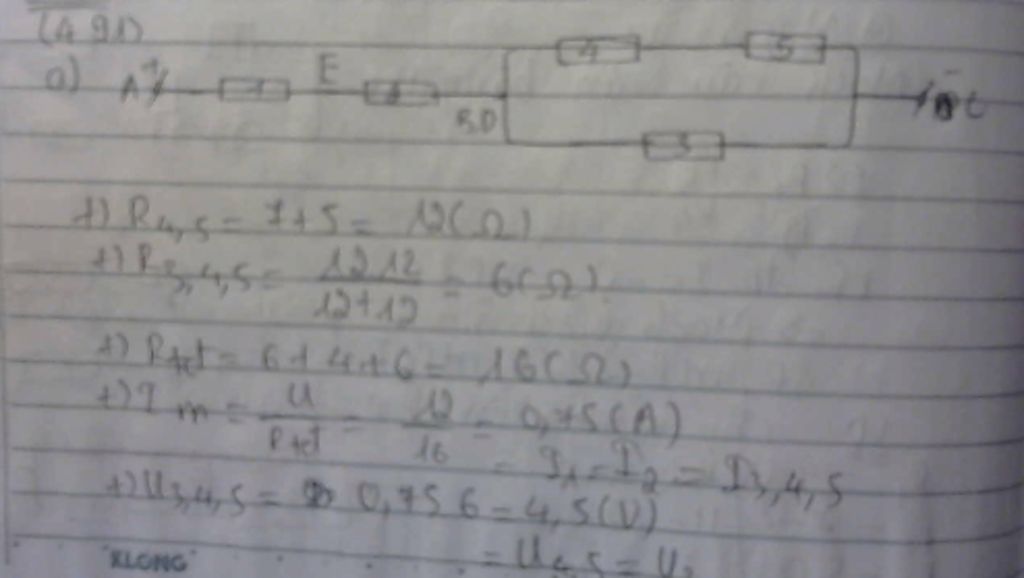 (491)
a) A + 1 E 2 B,D 4 5 3 - C
+) R4,5 = 7+5 = 12(Ω)
+) R3,4,5 = 12.12 / 12+12 = 6(Ω)
+) Rtđ = 6+4+6 = 16(Ω)
+) I m = U / Rtđ = 12 / 16 = 0,75(A)
= I1 = I2 = I3,4,5
+) U3,4,5 = 0,75 6 = 4,5(V)
= U4,5 = U3
KLONG